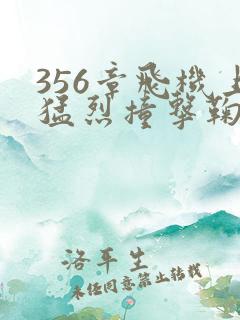 356章飛機上
猛烈撞擊鞠
洛平生
未经同意禁止转载